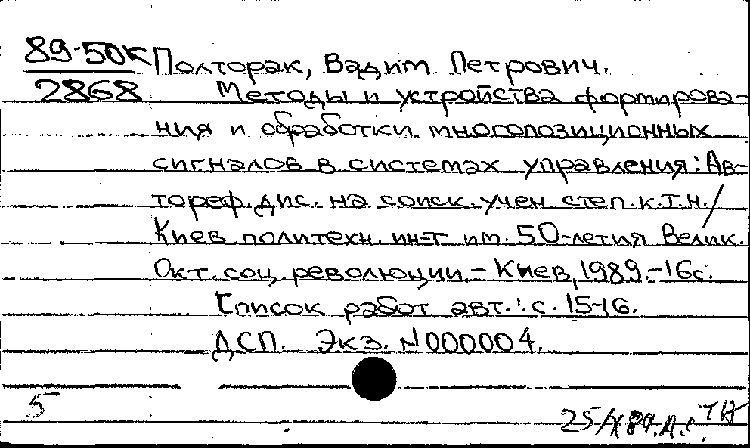 89-50к Полторак, Вадим Петрович.
2868 Методы и устройства формирова-
ния и обработки многопозиционных
сигналов в системах управления: Ав-
тореф. дис. на соиск. учен. степ. к.т.н. /
Киев. политехн. ин-т им. 50-летия Велик.
Окт. соц. революции. - Киев, 1989. - 16с.
Список работ авт.: с. 15-16.
ДСП. Экз. N000004.
5
25/X 89.